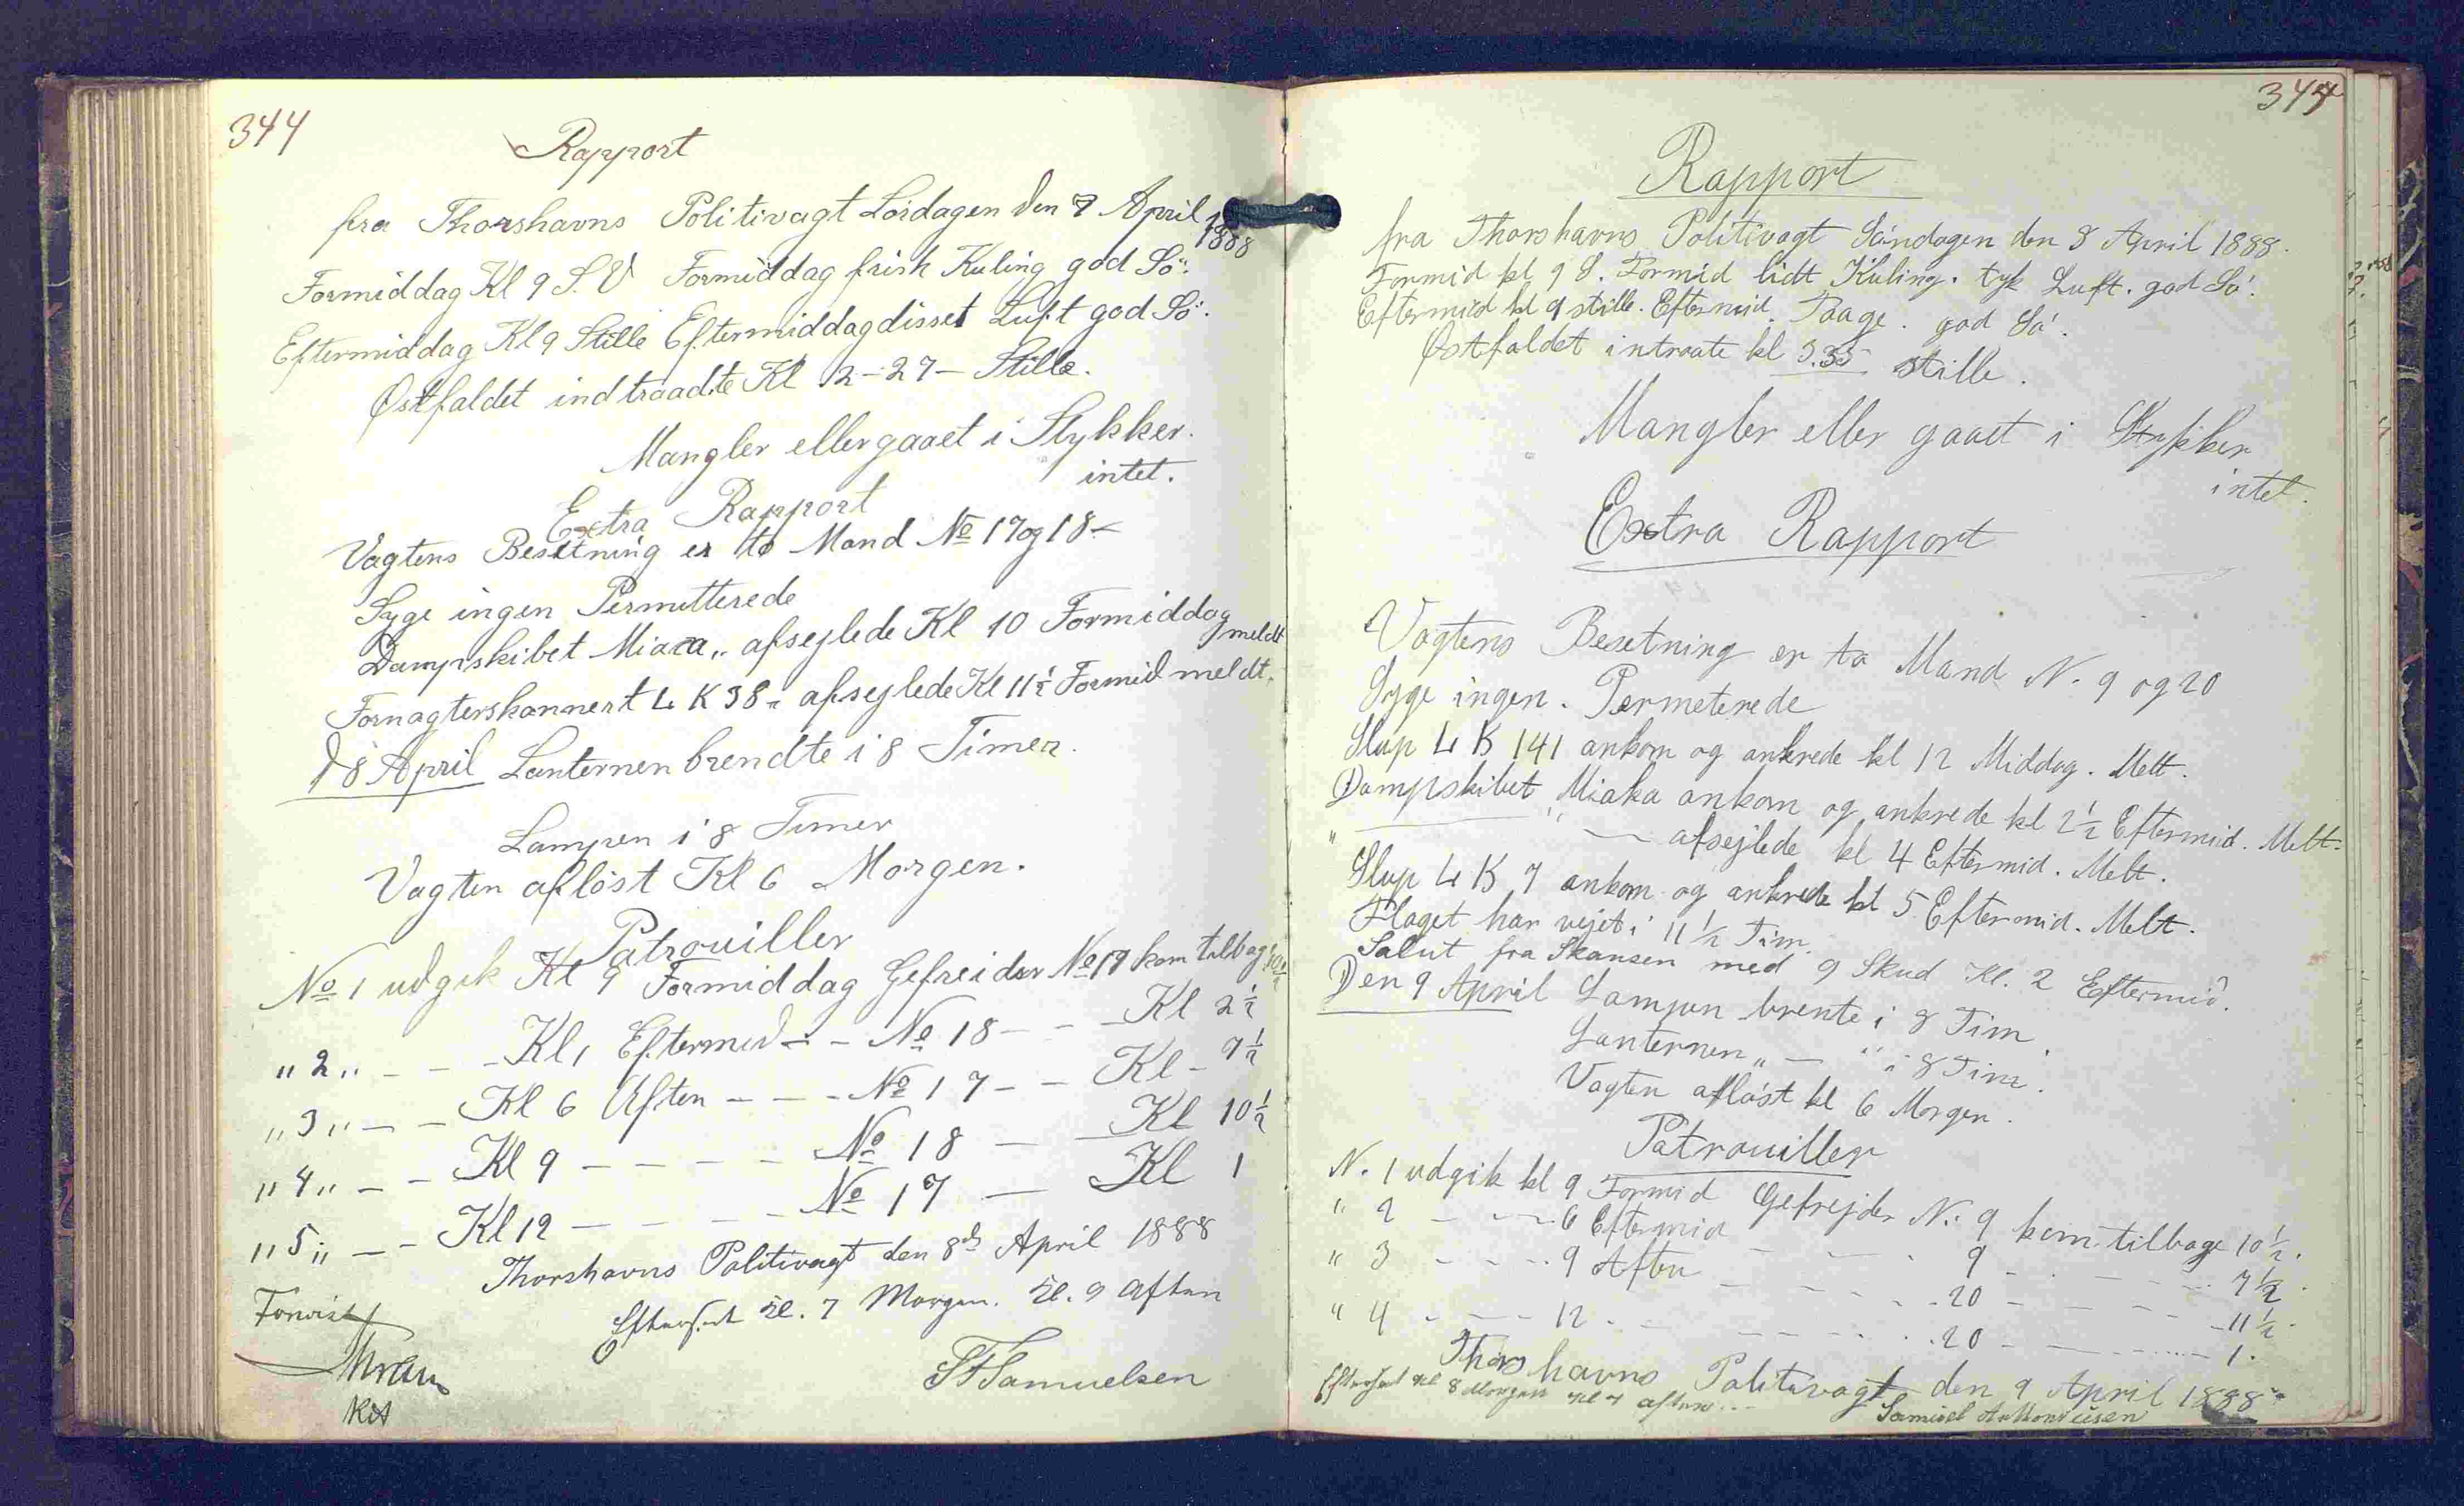 344
Rapport
fra Thorshavns Politivagt Lördagen den 7 April 1888
Formiddag Kl 9 S.V Formiddag frisk Kuling god Sö.
Eftermiddag Kl 9 Stille Eftermiddag disset Luft god Sö.
Østfaldet indtraadte Kl 2-27- Stille.
Mangler eller gaaet i Stykker.
intet.
Extra Rapport
Vagtens Besetning er to Mand No 17 og 18-
Syge ingen Permitterede
Dampskibet Miaca,, afsejlede Kl 10 Formiddag meldt
L K 38 " afsejlede Kl 11½ Formid meldt.
D 8 April Lanternen brendte i 8 Timer.
Lampen i 8 Timer
Vagten aflöst Kl 6 Morgen.
Patrouiller
No 1 udgik Kl 9 Formiddag Gefreider No 17 kom tilbag 10½
" 2 " - - - Kl 1 Eftermid - - No 18 - - - Kl 2½
" 3 " - - - Kl 6 Aften - - - No 17 - - Kl - 7½
" 4 " - - - Kl 9 - - - - - No 18 - - Kl 10½
" 5 " - - - Kl 12 - - - - - No 17 - Kl 1
Thorshavns Politivagt den 8de April 1888
Efterset Kl. 7 Morgen. Kl. 9 Aften
Forevist
Samuelsen
344
Rapport
fra Thorshavns Politivagt Söndagen den 8 April 1888.
Formid kl 9 S. Formid lidt Kuling. tyk Luft. god Sö.
Eftermid kl 9 stille. Eftermid. Taage. god Sö.
Østfaldet intraate kl 3.35 stille.
Mangler eller gaaet i Stykker
intet.
Extra Rapport
Vagtens Besetning er to Mand N. 9 og 20
Syge ingen. Permeterede
Slup L K 141 ankom og ankrede kl 12 Middag. Melt.
Dampskibet Miaka ankom og ankrede kl 2½ Eftermid. Melt.
" — " — afsejlede kl 4 Eftermid. Melt.
Slup L K 7 ankom og ankrede kl 5 Eftermid. Melt.
Flaget har vejet i 11½ Tim.
Salut fra Skansen med 9 Skud Kl. 2 Eftermid.
Den 9 April Lampen brente i 8 Tim.
Lanternen " — " i 8 Tim.
Vagten aflöst kl 6 Morgen.
Patrouiller
N. 1 udgik kl 9 Formid Gefrejder N. 9 kom tilbage 10½.
" 2 - - - 6 Eftermid - - - 9 - - - 7½.
" 3 - - - 9 Aften - - - 20 - - - 11½.
" 4 - - - 12 - - - 20 - - - 1.
Thorshavns Politivagt den 9 April 1888
Efterset Kl 8 Morgen Kl 7 aften
Samuel